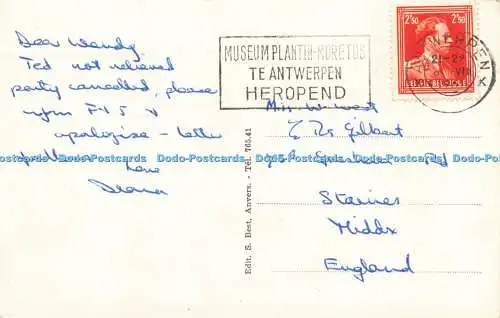 Dear Wendy
Ted not relieved
party cancelled, please
inform F & S &
apologise - letter
Love
Diana
MUSEUM PLANTIN-MORETUS
TE ANTWERPEN
HEROPEND
2F50 2F50
BELGIE-BELGIQUE
ANTWERPEN
21-22
X
Miss W. West
Gilbert
Rd
Staines
Middx
England
Edit. S. Best, Anvers. - Tél. 765.41
Dodo-Postcards Dodo-Postcards Dodo-Postcards Dodo-Postcards Dodo-Postcards